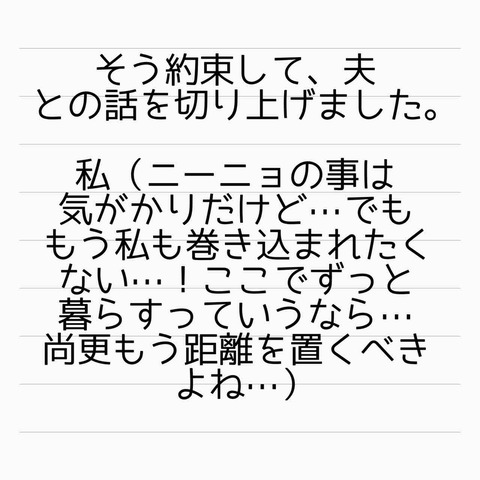 そう約束して、夫
との話を切り上げました。
私（ニーニョの事は
気がかりだけど…でも
もう私も巻き込まれたく
ない…！ここでずっと
暮らすっていうなら…
尚更もう距離を置くべき
よね…）